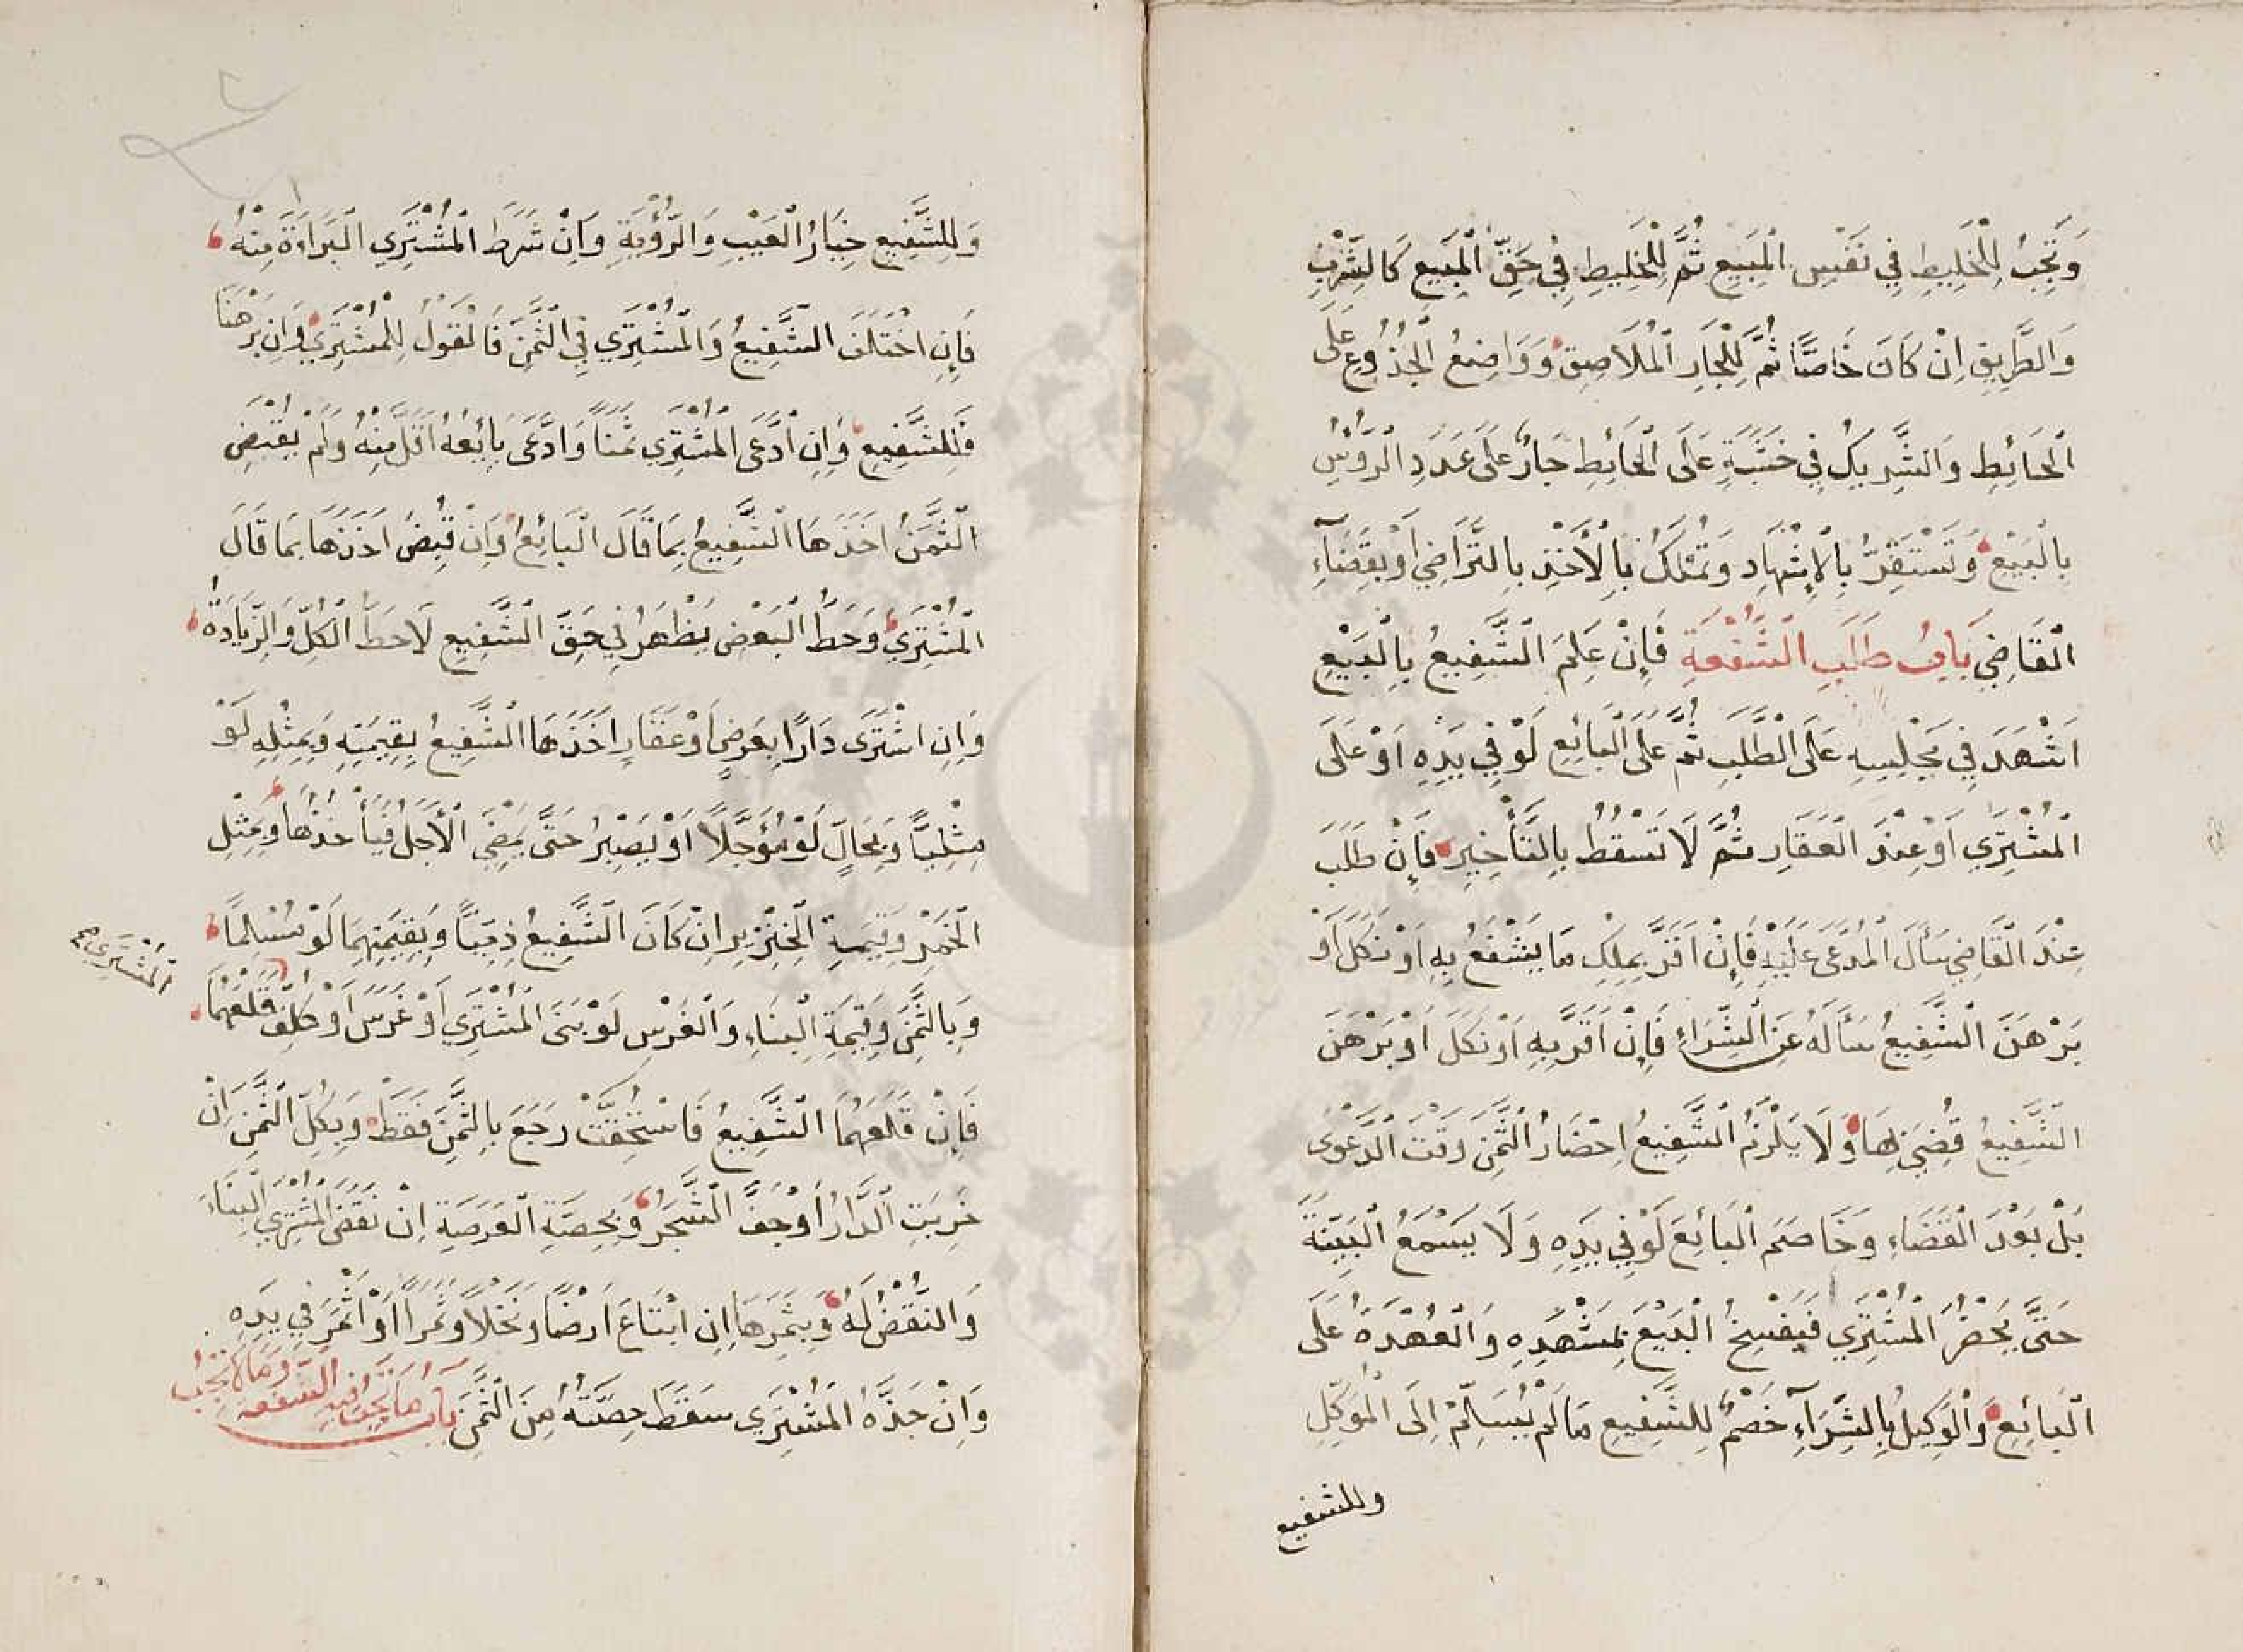 وَتَجِبُ لِلْخَلِيطِ فِي نَفْسِ الْمَبِيعِ ثُمَّ لِلْخَلِيطِ فِي حَقِّ الْمَبِيعِ كَالشِّرْبِ
وَالطَّرِيقِ اِنْ كَانَ خَاصًّا ثُمَّ لِلْجَارِ الْمُلَاصِقِ وَوَاضِعُ الْجُذُوعِ عَلَى
الْحَائِطِ وَالشَّرِيكُ فِي خَشَبَةٍ عَلَى الْحَائِطِ جَارٌ عَلَى عَدَدِ الرُّؤُسِ
بِالْبَيْعِ وَتَسْتَقِرُّ بِالْاِشْهَادِ وَتُمْلَكُ بِالْأَخْذِ بِالتَّرَاضِي اَوْ بِقَضَآءِ
الْقَاضِي بَابُ طَلَبِ الشُّفْعَةِ فَإِنْ عَلِمَ الشَّفِيعُ بِالْبَيْعِ
اَشْهَدَ فِي مَجْلِسِهِ عَلَى الطَّلَبِ ثُمَّ عَلَى الْبَائِعِ لَوْ فِي يَدِهِ اَوْ عَلَى
الْمُشْتَرِي اَوْ عِنْدَ الْعَقَارِ ثُمَّ لَا تَسْقُطُ بِالتَّأْخِيرِ فَاِنْ طَلَبَ
عِنْدَ الْقَاضِي سَأَلَ الْمُدَّعَى عَلَيْهِ فَإِنْ اَقَرَّ بِمِلْكِ مَا يَشْفَعُ بِهِ اَوْ نَكَلَ اَوْ
بَرْهَنَ الشَّفِيعُ سَأَلَهُ عَنِ الشِّرَاءِ فَإِنْ اَقَرَّ بِهِ اَوْ نَكَلَ اَوْ بَرْهَنَ
الشَّفِيعُ قُضِيَ بِهَا وَلَا يَلْزَمُ الشَّفِيعُ اِحْضَارُ الثَّمَنِ وَقْتَ الدَّعْوَى
بَلْ بَعْدَ الْقَضَاءِ وَخَاصَمَ الْبَائِعَ لَوْ فِي يَدِهِ وَلَا يَسْمَعُ الْبَيِّنَةَ
حَتَّى يَحْضُرَ الْمُشْتَرِي فَيَفْسِخُ الْبَيْعَ بِمَشْهَدِهِ وَالْعُهْدَةُ عَلَى
الْبَائِعِ وَالْوَكِيلُ بِالشِّرَآءِ خَصْمٌ لِلشَّفِيعِ مَا لَمْ يُسَلِّمْ اِلَى الْمُوَكِّلِ
وللشفيع
وَلِلشَّفِيعِ خِيَارُ الْعَيْبِ وَالرُّؤْيَةِ وَاِنْ شَرَطَ الْمُشْتَرِي الْبَرَاءَةَ مِنْهُ
فَإِنِ اخْتَلَفَ الشَّفِيعُ وَالْمُشْتَرِي فِي الثَّمَنِ فَالْقَوْلُ لِلْمُشْتَرِي وَاِنْ بَرْهَنَا
فَلِلشَّفِيعِ وَاِنِ ادَّعَى الْمُشْتَرِي ثَمَنًا وَادَّعَى بَائِعُهُ اَقَلَّ مِنْهُ وَلَمْ يَقْبِضِ
الثَّمَنَ اَخَذَهَا الشَّفِيعُ بِمَا قَالَ الْبَائِعُ وَاِنْ قُبِضَ اَخَذَهَا بِمَا قَالَ
الْمُشْتَرِي وَحَطُّ الْبَعْضِ يَظْهَرُ فِي حَقِّ الشَّفِيعِ لَا حَطُّ الْكُلِّ وَالزِّيَادَةُ
وَاِنِ اشْتَرَى دَارًا بِعَرْضٍ اَوْ عَقَارٍ اَخَذَهَا الشَّفِيعُ بِقِيمَتِهِ وَبِمِثْلِهِ لَوْ
مِثْلِيًّا وَبِحَالٍّ لَوْ مُؤَجَّلًا اَوْ يَصْبِرُ حَتَّى يَمْضِيَ الْأَجَلُ فَيَأْخُذُهَا وَبِمِثْلِ
الْخَمْرِ وَقِيمَةِ الْخِنْزِيرِ اِنْ كَانَ الشَّفِيعُ ذِمِّيًّا وَبِقِيمَتِهِمَا لَوْ مُسْلِمًا
وَبِالثَّمَنِ وَقِيمَةِ الْبِنَاءِ وَالْغَرْسِ لَوْ بَنَى الْمُشْتَرِي اَوْ غَرَسَ اَوْ كُلِّفَ قَلْعَهُمَا
الْمُشْتَرِي صح
فَاِنْ قَلَعَهُمَا الشَّفِيعُ فَاسْتُحِقَّتْ رَجَعَ بِالثَّمَنِ فَقَطْ وَبِكُلِّ الثَّمَنِ اِنْ
خَرِبَتِ الدَّارُ اَوْ جَفَّ الشَّجَرُ وَبِحِصَّةِ الْعَرَصَةِ اِنْ نَقَضَ الْمُشْتَرِي الْبِنَاءَ
وَالنَّقْضُ لَهُ وَبِثَمَرِهَا اِنِ ابْتَاعَ اَرْضًا وَنَخْلًا وَثَمَراً اَوْ اَثْمَرَ فِي يَدِهِ
وَاِنْ جَذَّهُ الْمُشْتَرِي سَقَطَ حِصَّتُهُ مِنَ الثَّمَنِ بَابُ مَا تَجِبُ فِيهِ الشُّفْعَةُ وَمَا لَا تَجِبُ